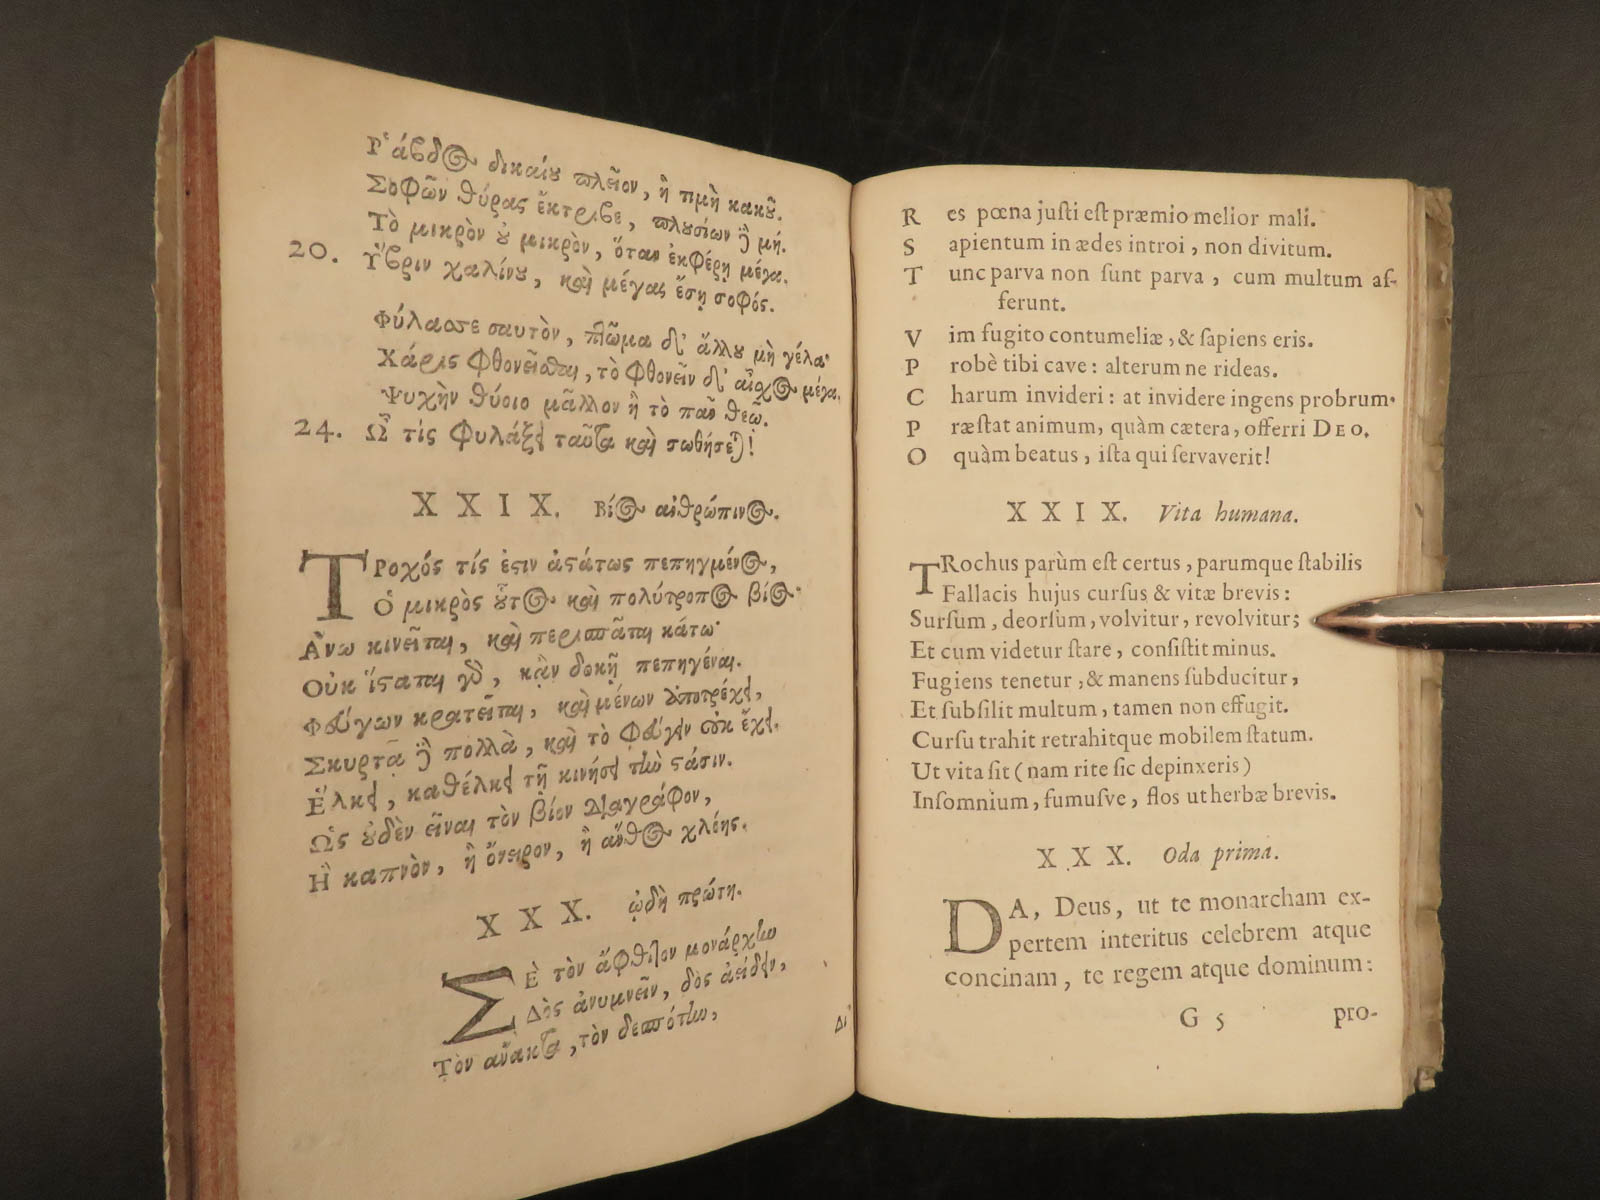 Ῥάβδος δικαίου πλεῖον, ἢ τιμὴ κακοῦ.
Σοφῶν θύρας ἔκτριβε, πλουσίων δὲ μή.
Τὸ μικρὸν οὐ μικρὸν, ὅταν ἐκφέρῃ μέγα.
20. Ὕβριν χαλίνου, καὶ μέγας ἔσῃ σοφός.
Φύλασσε σαυτὸν, πτῶμα δ' ἄλλου μὴ γέλα·
Χάρις φθονεῖσθαι, τὸ φθονεῖν δ' αἶσχος μέγα.
Ψυχὴν θύοιο μᾶλλον ἢ τὸ πᾶν θεῷ.
24. Ὢ τίς φυλάξει ταῦτα καὶ σωθήσεται!
XXIX. Βίος ἀνθρώπινος.
ΤΡοχός τίς ἐστιν ἀστάτως πεπηγμένος,
Ὁ μικρὸς οὗτος καὶ πολύτροπος βίος·
Ἄνω κινεῖται, καὶ περισπᾶται κάτω·
Οὐκ ἵσταται γὰρ, κᾂν δοκῇ πεπηγέναι.
Φεύγων κρατεῖται, καὶ μένων ἀποτρέχει,
Σκυρτᾷ δὲ πολλὰ, καὶ τὸ φεύγειν οὐκ ἔχει.
Ἕλκει, καθέλκει τῇ κινήσει τὴν στάσιν.
Ὡς οὐδὲν εἶναι τὸν βίον διαγράφον,
Ἢ καπνὸν, ἢ ὄνειρον, ἢ ἄνθος χλόης.
XXX. ᾠδὴ πρώτη.
ΣῈ τὸν ἄφθιτον μονάρχην
Δὸς ἀνυμνεῖν, δὸς ἀείδειν,
Τὸν ἄνακτα, τὸν δεσπότην,
Δι'
R es pœna justi est præmio melior mali.
S apientum in ædes introi, non divitum.
T unc parva non sunt parva, cum multum af-
ferunt.
V im fugito contumeliæ, & sapiens eris.
P robè tibi cave: alterum ne rideas.
C harum invideri: at invidere ingens probrum.
P ræstat animum, quàm cætera, offerri DEO.
O quàm beatus, ista qui servaverit!
XXIX. Vita humana.
TRochus parùm est certus, parumque stabilis
Fallacis hujus cursus & vitæ brevis:
Sursum, deorsùm, volvitur, revolvitur;
Et cum videtur stare, consistit minus.
Fugiens tenetur, & manens subducitur,
Et subsilit multum, tamen non effugit.
Cursu trahit retrahitque mobilem statum.
Ut vita sit (nam rite sic depinxeris)
Insomnium, fumusve, flos ut herbæ brevis.
XXX. Oda prima.
DA, Deus, ut te monarcham ex-
pertem interitus celebrem atque
concinam, te regem atque dominum:
G 5 pro-